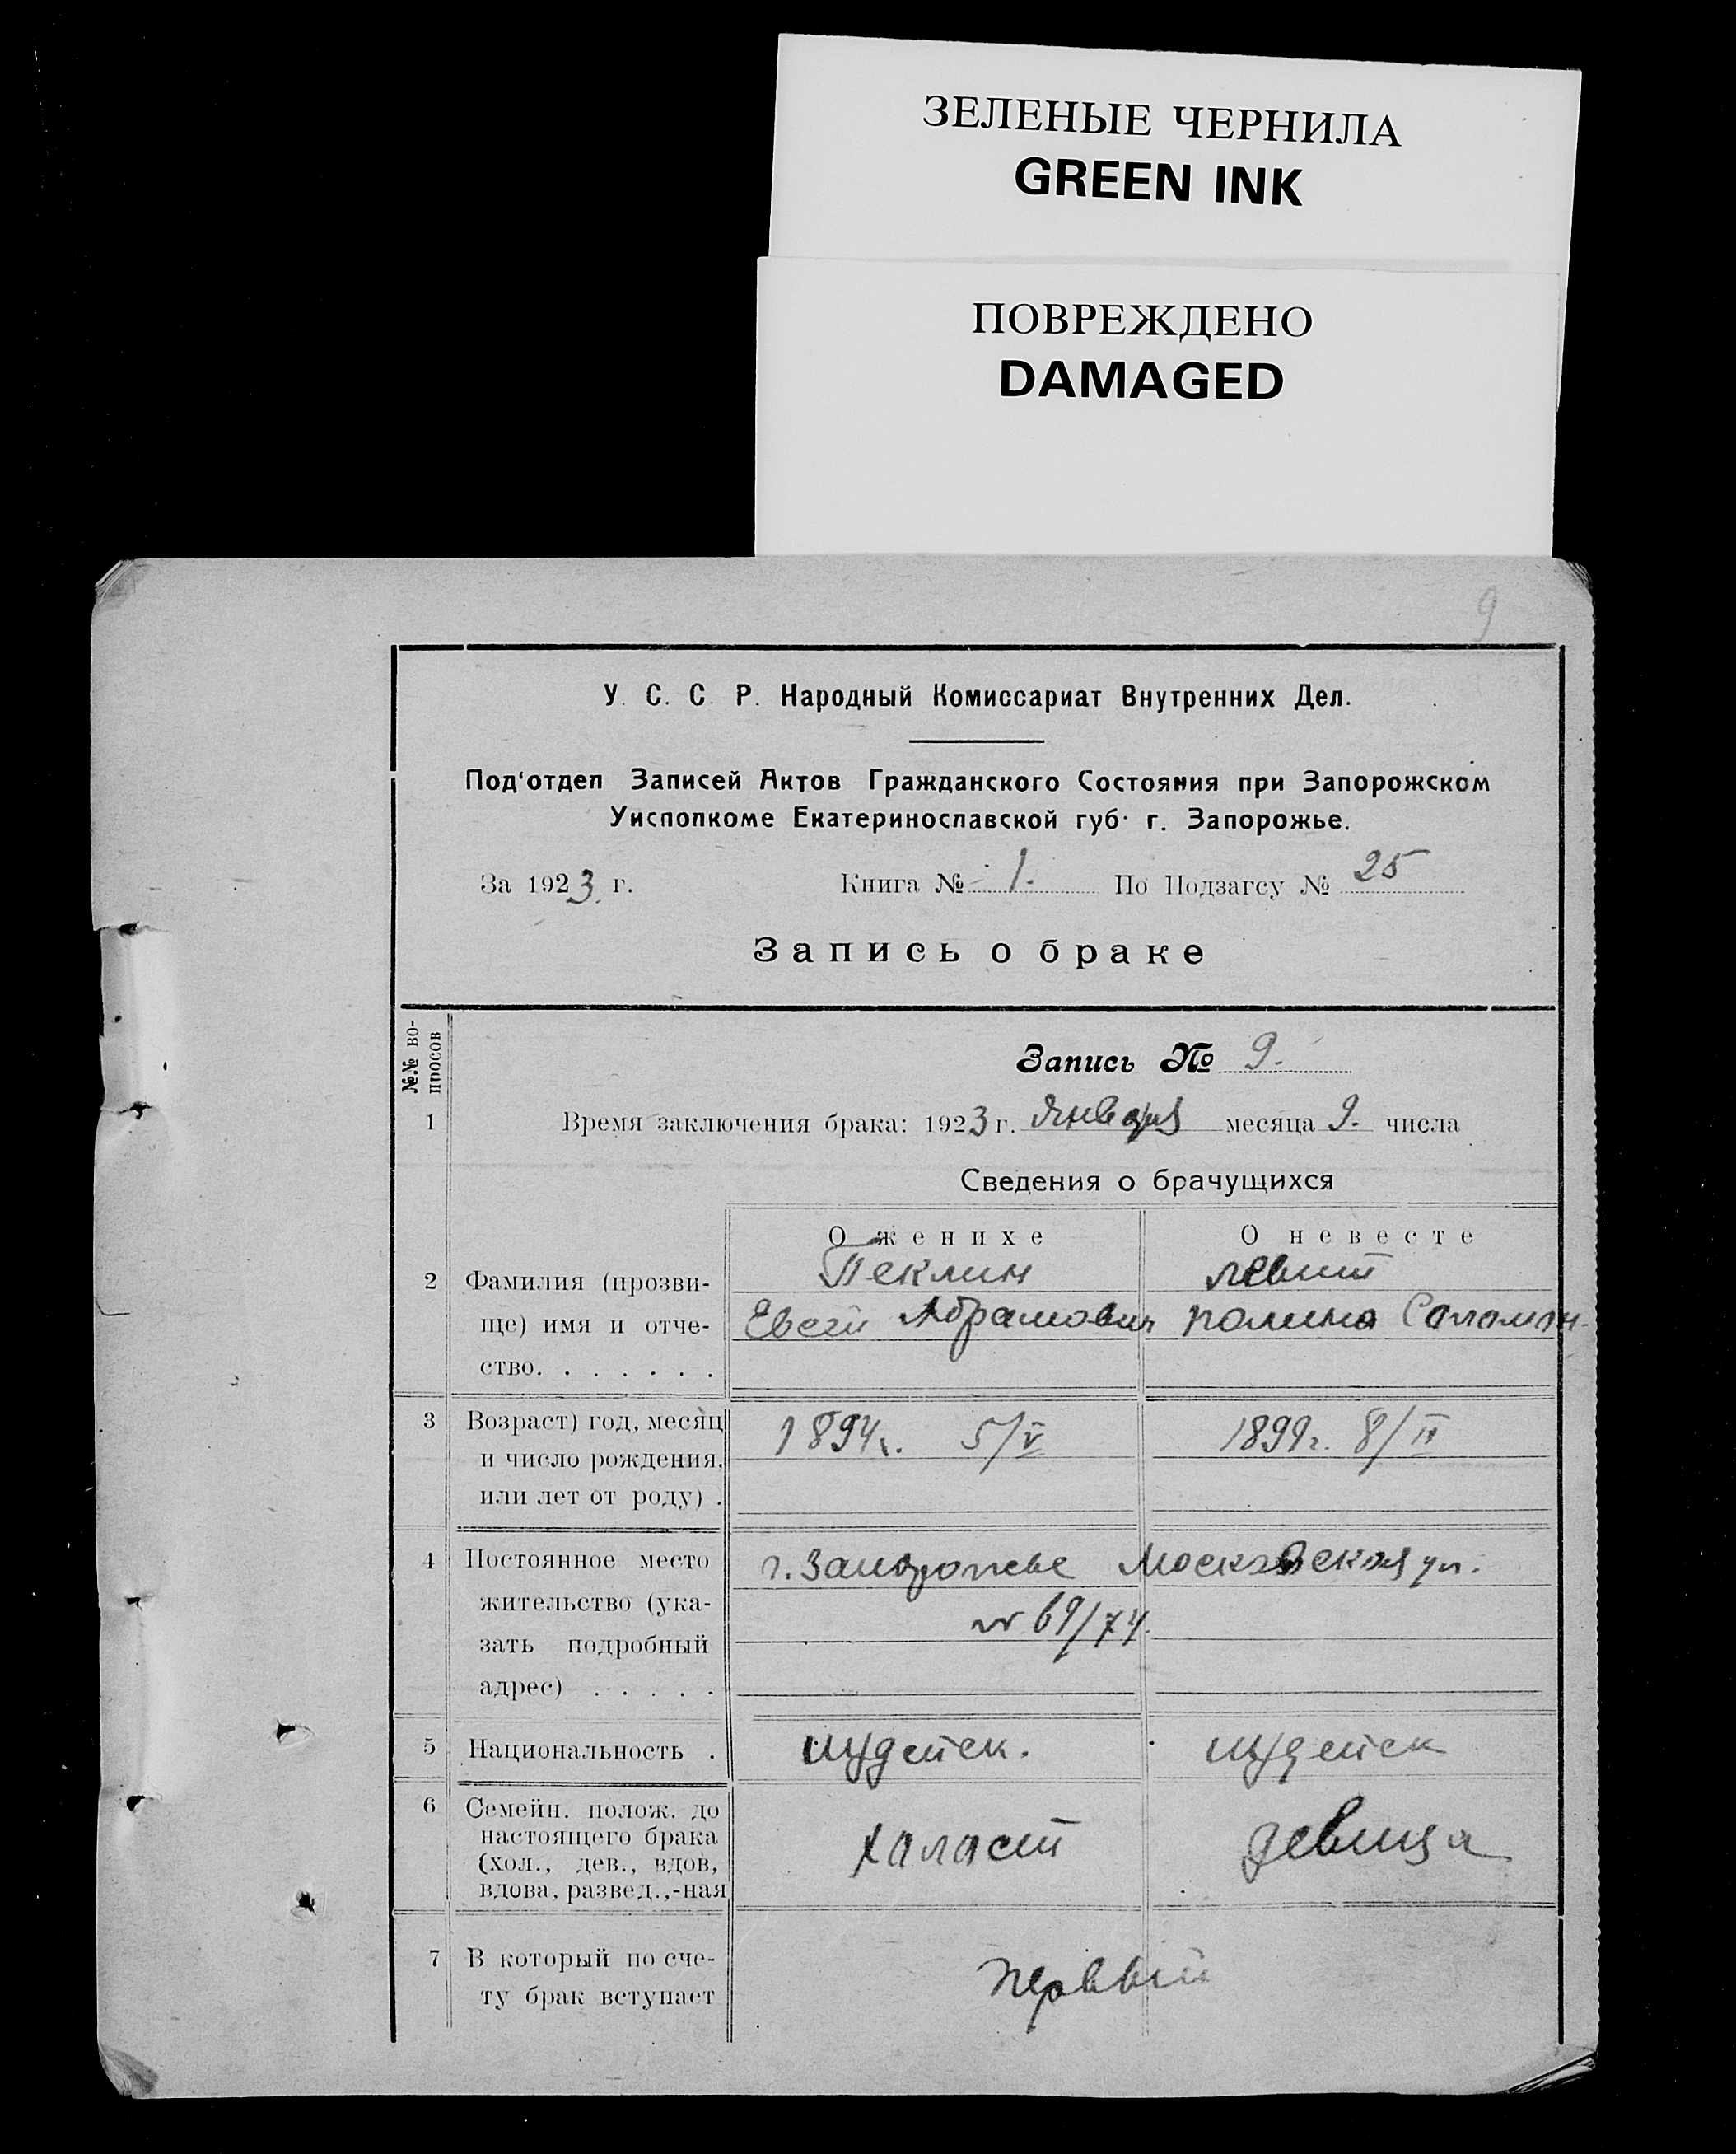 ЗЕЛЕНЫЕ ЧЕРНИЛА
GREEN INK
ПОВРЕЖДЕНО
DAMAGED
9
У. С. С. Р. Народный Комиссариат Внутренних Дел.
Под'отдел Записей Актов Гражданского Состояния при Запорожском
Уисполкоме Екатеринославской губ. г. Запорожье.
За 1923 г. Книга № 1. По Подзагсу № 25
Запись о браке
№.№ во-
просов
Запись № 9.
1 Время заключения брака: 1923 г. января месяца 9. числа
Сведения о брачущихся
О женихе О невесте
2 Фамилия (прозви- Пеклин Левит
ще) имя и отче- Евсей Абрамович Полина Саламон-
ство. . . . . . .
3 Возраст) год, месяц 1894г. 5/V 1899г. 8/II
и число рождения,
или лет от роду) .
4 Постоянное место г. Запорожье Московская ул.
жительство (ука- № 69/74.
зать подробный
адрес) . . . . .
5 Национальность . иудейск. иудейск
6 Семейн. полож. до
настоящего брака халост девица
(хол., дев., вдов,
вдова, развед.,-ная
7 В который по сче- первый
ту брак вступает